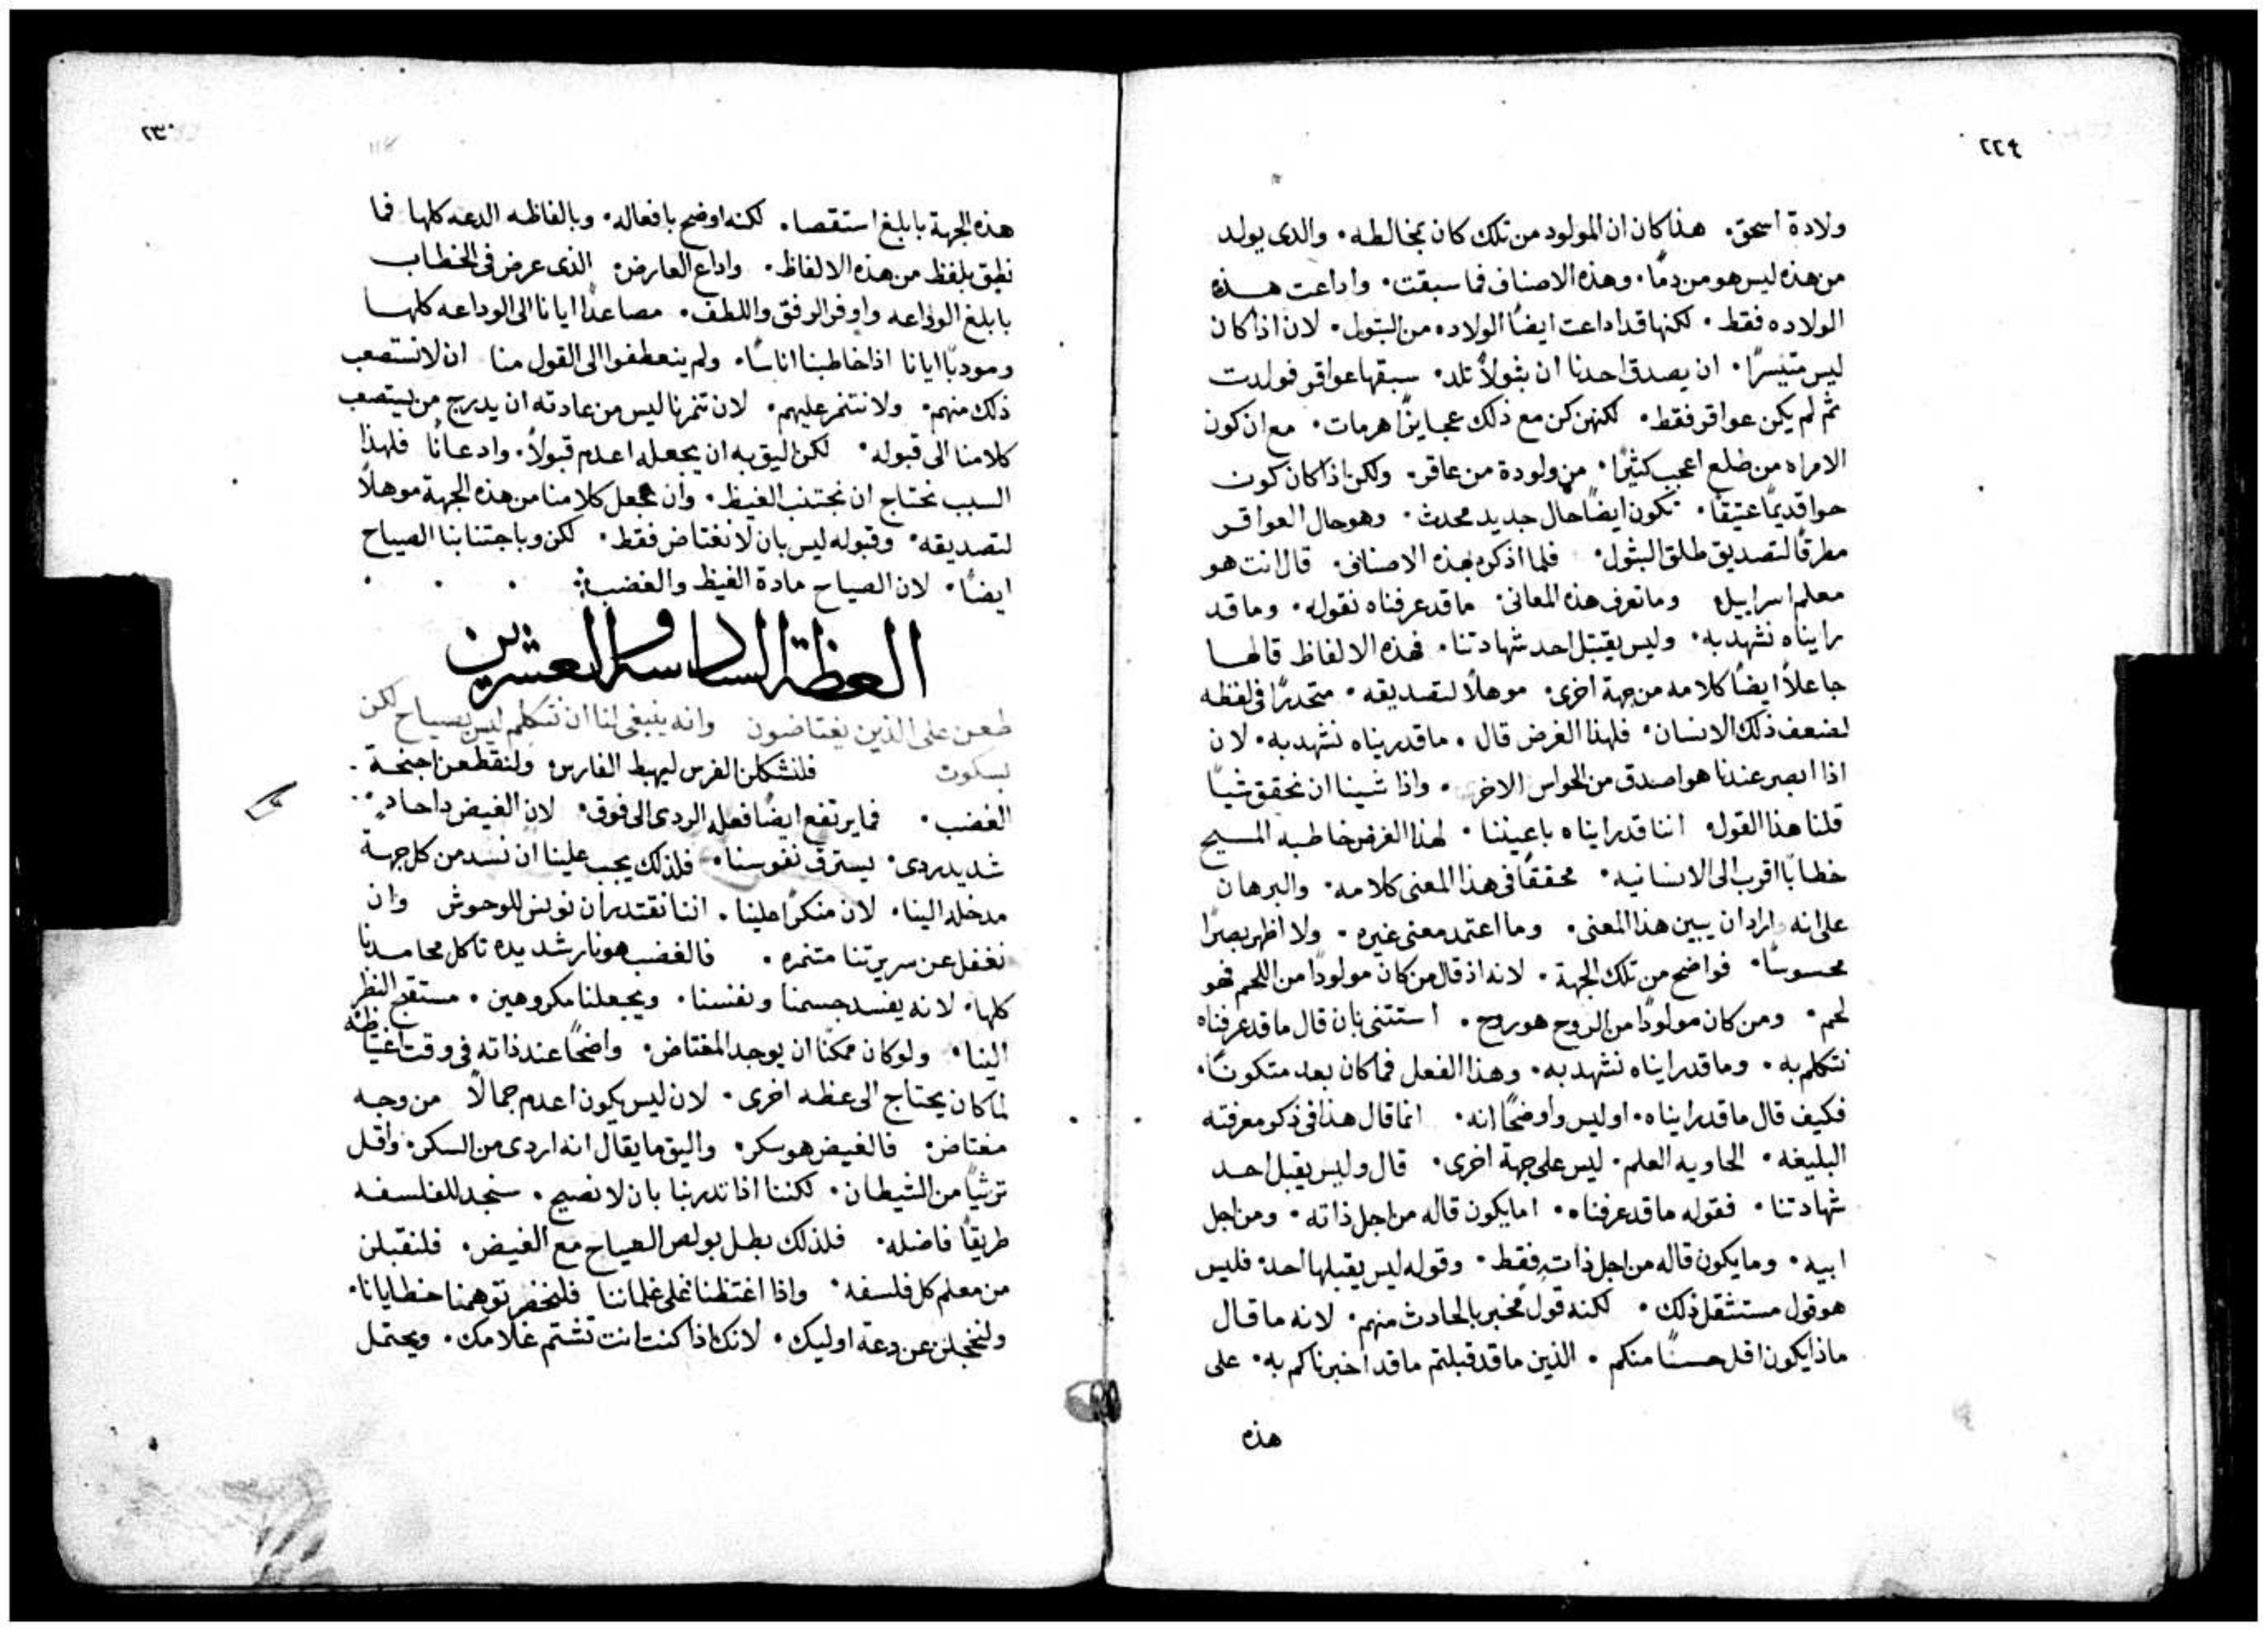 ٢٢٩
ولادة اسحق. هذا كان ان المولود من تلك كان بمخالطه. والدى يولد
من هذه ليس هو من دمًا. وهذه الاصناف فما سبقت. واداعت هذه
الولاده فقط. لكنها قد اداعت ايضًا الولاده من البتول. لان اذا كان
ليس متيسرًا. ان يصدق احدنا ان بثولاً تلد. سبقها عواقر فولدت
ثم لم يكن عواقر فقط. لكنهن كن مع ذلك عجايزًا هرمات. مع ان كون
الامراه من ضلع اعجب كثيرًا. من ولودة من عاقر. ولكن اذا كان كون
حوا قديمًا عتيقًا. تكون ايضًا حال جديد محدث. وهو حال العواقر
مطرقًا لتصديق طلق البثول. فلما اذكره بهذه الاصناف. قال انت هو
معلم اسراييل وما تعرف هذه المعانى. ما قد عرفناه نقوله. وما قد
رايناه نشهد به. وليس يقتبل احد شهادتنا. فهذه الالفاظ قالها
جاعلاً ايضًا كلامه من جهة اخرى. موهلاً لتصديقه. متحدرًا فى لفظه
لضعف ذلك الانسان. فلهذا الغرض قال. ما قد ريناه نشهد به. لان
اذا ابصر عندنا هو اصدق من الحواس الاخر. واذا شينا ان نحقق شيًا
قلنا هذا القول اننا قد راينا ه باعيننا. لهذا الغرض خاطبه المسيح
خطابًا اقرب الى الانسانيه. محققًا فى هذا المعنى كلامه. والبرهان
على انه اراد ان يبين هذا المعنى. وما اعتمد معنى غيره. ولا اظهر بصرًا
محسوسًا. فواضح من تلك الجهة. لانه اذ قال من كان مولودًا من اللحم فهو
لحم. ومن كان مولودًا من الروح هو روح. استتنى بان قال ما قد عرفناه
نتكلم به. وما قد رايناه نشهد به. وهذا الفعل فما كان بعد متكونًا.
فكيف قال ما قد رايناه. اوليس واوضحًا انه. انما قال هذا فى ذكر معرفته
البليغه. الحاويه العلم. ليس على جهة اخرى. قال وليس يقبل احد
شهادتنا. فقوله ما قد عرفناه. اما يكون قاله من اجل ذاته. ومن اجل
ابيه. وما يكون قاله من اجل ذاته فقط. وقوله ليس يقبلها احد. فليس
هو قول مستثقل ذلك. لكنه قول مخبر بالحادث منهم. لانه ما قال
ماذا يكون اقل حسنًا منكم. الذين ما قد قبلتم ما قد اخبرناكم به. على
هذه
٢٣٠
هذه الجهة بابلغ استقصا. لكنه اوضح بافعاله. وبالفاظه الدعه كلها فما
نطق بلفظ من هذه الالفاظ. واداع العارض الذى عرض فى الخطاب
بابلغ الوداعه واوفر الرفق واللطف. مصاعدًا ايانا الى الوداعه كلها
ومودبًا ايانا اذا خاطبنا اناسًا. ولم ينعطفوا الى القول منا ان لا نستصعب
ذلك منهم. ولا نتنمر عليهم. لان تنمرنا ليس من عادته ان يدرج من يستصعب
كلامنا الى قبوله. لكن اليق به ان يجعله اعدم قبولاً. وادعانًا فلهذا
السبب نحتاج ان نجتنب الغيظ. وان نجعل كلامنا من هذه الجهة موهلاً
لتصديقه. وقبوله ليس بان لا نغتاض فقط. لكن وباجتنابنا الصياح
ايضًا. لان الصياح مادة الغيظ والغضب
العظة السادسة والعشرين
طعن على الذين يغتاضون وانه ينبغى لنا ان نتكلم ليس بصياح لكن
بسكوت فلنشكلن الفرس ليهبط الفارس. ولنقطعن اجنحة
الغضب. فما يرتفع ايضًا فعله الردى الى فوق. لان الغيض دا حاد
شديد ردى. يسترق نفوسنا. فلذلك يجب علينا ان نسد من كل جهة
مدخله الينا. لان منكرًا علينا. اننا نقتدر ان نونس للوحوش وان
نغفل عن سريرتنا متنمره. فالغضب هو نار شديده تاكل محامدنا
كلها. لانه يفسد جسمنا ونفسنا. ويجعلنا مكروهين. مستقبح النظر
الينا. ولو كان ممكنًا ان يوجد المغتاض. واضحًا عند ذاته فى وقت اغتياظه
لما كان يحتاج الى عظه اخرى. لان ليس يكون اعدم جمالاً من وجه
مغتاض. فالغيض هو سكر. واليق ما يقال انه اردى من السكر. واقل
ترثيًا من الشيطان. لكننا اذا تدربنا بان لا نصيح. سنجد للفلسفه
طريقًا فاضله. فلذلك بطل بولص الصياح مع الغيض. فلنقبلن
من معلم كل فلسفه. واذا اغتظنا على غلماننا فلنخفر توهمنا خطايانا.
ولنخجلن عن دعة اوليك. لانك اذا كنت انت تشتم غلامك. ويحتمل